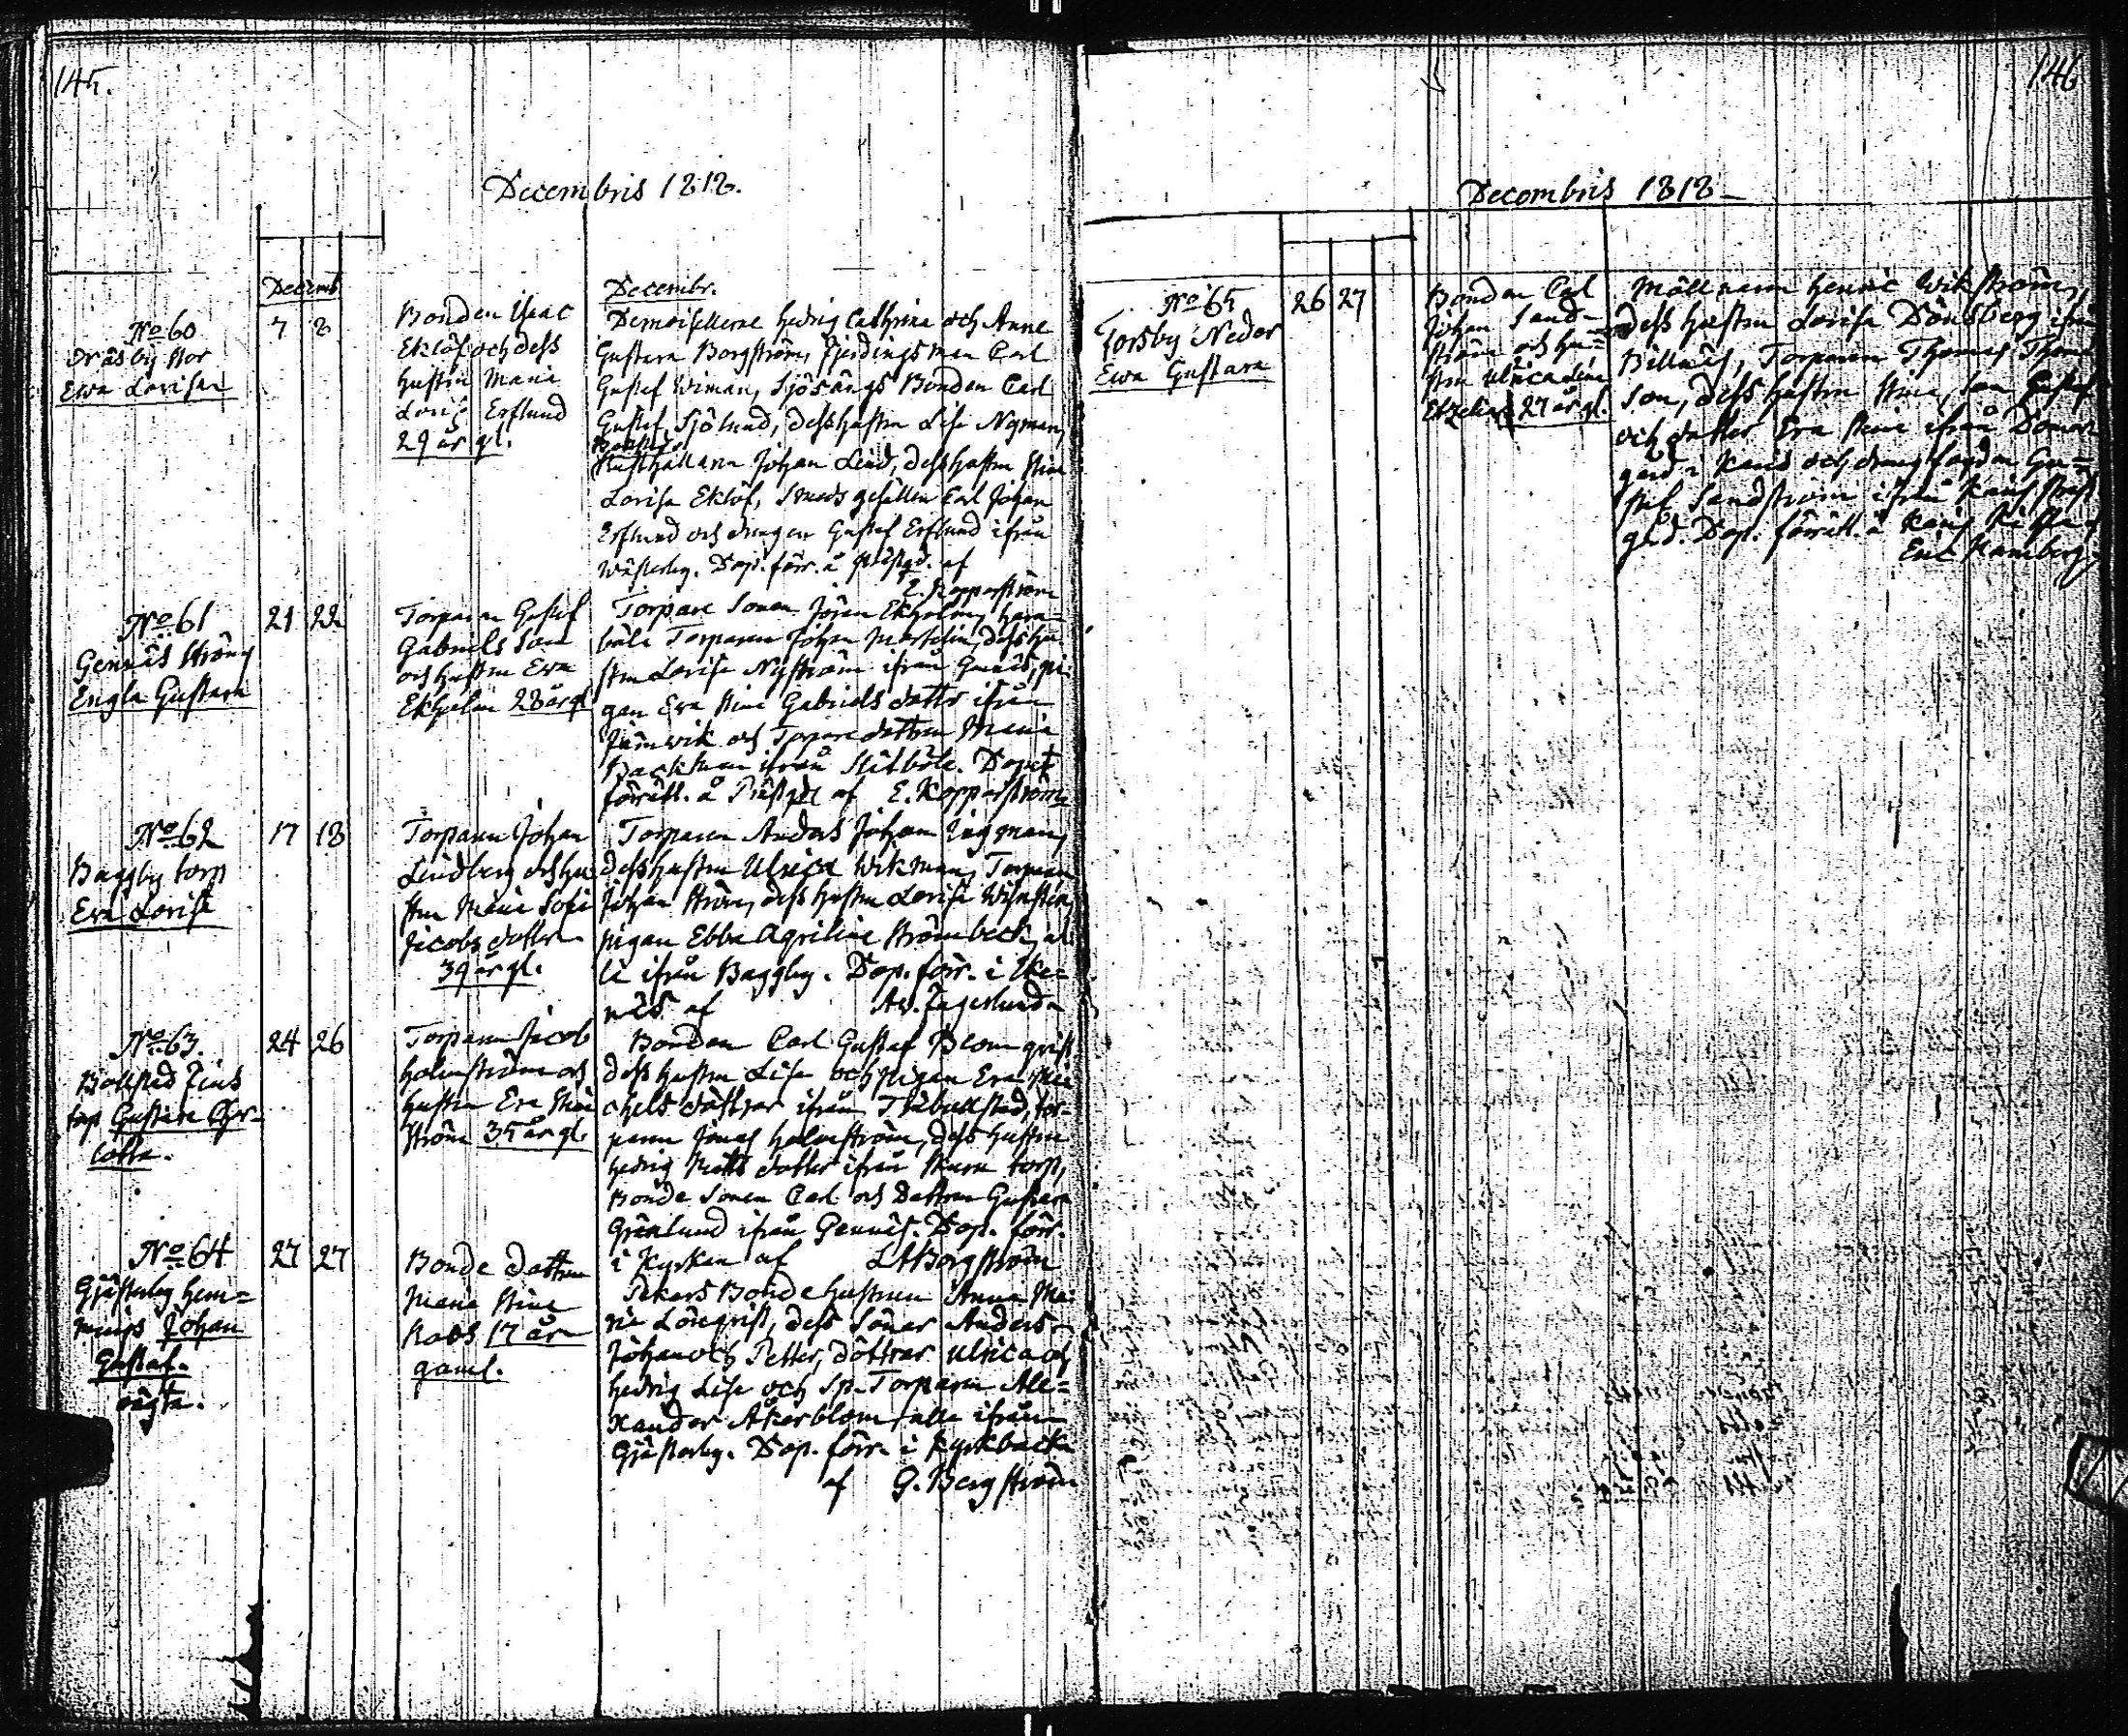 145.
Decembris 1818.
Decemb
No 60
Stor
Ewa Lovisa
7 8
Bonden Isaac
Eklöf och dess
hustru Maria
Lovis Erslund
29 år gl.
Decembr.
Demoisellerne Hedvig Cathrina och Anna
Gustava Borgström, Fjerdingsman Carl
Gustef Wiman, Sjösängs Bonden Carl
Gustef Sjölund, dess hustru Lisa Nyman,
Rusthållaren Johan Lind, dess hustru Stina
Lovisa Eklöf, Smeds gesällen Carl Johan
Erslund och drengen Gustef Erslund ifrån
Westerby. Dop. förr. å Prästgd. af
E. Kopparström
No 61
Gennäs Ström
Engla Gustava
21 22
Torparen Gustef
Gabriels Son
och hustru Eva
Ekholm 28 år gl
Torpare Sonen Jöran Ekholm, Hara-
böle Torparen Johan Mertelin, dess hu-
stru Lovisa Nyström ifrån Gennäs, pi-
gan Eva Stina Gabriels dotter ifrån
och Torpare dottren Maria
Backman ifrån Slitböle. Dopet
förrätt. å Prästgd af E. Kopparström
No 62
Baggby torp
Eva Lovisa
17 18
Torparen Johan
Lindberg och hu-
stru Maria Sofia
Jacobs dotter
39 år gl.
Torparen Anders Johan Ingman,
dess hustru Ulrica Wikman, Torparen
Johan Ström, dess hustru Lovisa
pigan Ebba Agrilina Strömbeck, al-
la ifrån Baggby. Dop. förr. i Eke-
näs af Av. Fagerlund
No 63.
Bollstad
torp Gustava Char-
lotta.
24 26
Torparen Jacob
Holmström och
hustru Eva Stina
Ström 35 år gl.
Bonden Carl Gustaf Blomqvist
dess hustru Lisa och pigan Eva Mi-
chels dotter ifrån Bollstad, tor-
paren Jonas Holmström, dess hustru
Hedvig Matts dotter ifrån torp,
Bonde Sonen Carl och Dottren Gustava
Grönlund ifrån Gennäs. Dop. förr.
i Kyrkan af Borgström
No 64
Gjästerby Hem-
mings Johan
Gustaf.
oägta.
27 27
Bonde dottren
Maria Stina
Roos 17 år
gaml.
Bonde hustrun Anna Ma-
ria Lönqvist, dess Söner Anders
Johan och Petter, döttrar Ulrica och
Hedvig Lisa och Sp. Torparen Ale-
xander Åkerblom alla ifrån
Gjästerby. Dop. förr. i Kyrkbacka
af G. Bergström
146
Decembris 1818
No 65
Torsby Nedor
Ewa Gustava
26 27
Bonden Carl
Johan Sand-
ström och hu-
stru Ulrica Lena
27 år gl.
Möllnaren Henric Wikström,
dess hustru Lovisa Dönsberg ifrån
Billnäs, Torparen Thomas Thoms
Son, dess hustru Stina, Son Gustef
och dotter Eva Stina ifrån Domar
gård i Karis och drengs fogden Gu-
stef Sandström ifrån Karis Prest
gård. Dop. förrätt. å Karis
Eric Kamberg